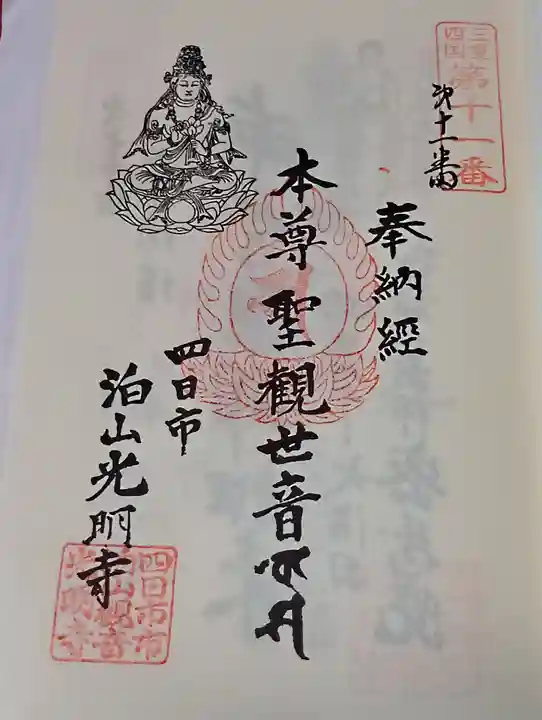 三重
四国
第十一番
第十一番
奉納經
本尊聖觀世音
四日市
泊山光明寺
四日市市
泊山観音
光明寺